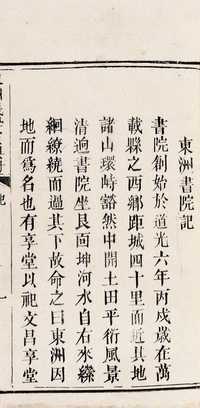 東洲書院記
書院創始於道光六年丙戌歲在萬
載縣之西鄉距城四十里而近其地
諸山環峙豁然中開土田平衍風景
清逈書院坐艮向坤河水自右來縈
繞繞而過其下故命之曰東洲因
地而爲名也有享堂以祀文昌享堂